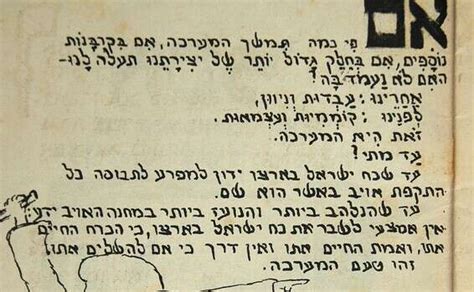 אם פי כמה תמשך המערכה, אם בקרבנות
נוספים, אם בחלק גדול יותר של יצירתנו תעלה לנו-
האם לא נעמוד בה?
אחרינו: עבדות וניוון,
לפנינו: קוממיות ועצמאות.
זאת היא המערכה.
עד מתי?
עד שכח ישראל בארצו ידון למפרע לתבוסה כל
התקפת אויב באשר הוא שם.
עד שהנלהב ביותר והנועז ביותר במחנה האויב ידע:
אין אמצעי לשבר את כח ישראל בארצו, כי הכרח החיים
אתו, ואמת החיים אתו ואין דרך כי אם להשלים אתו.
זהו טעם המערכה.